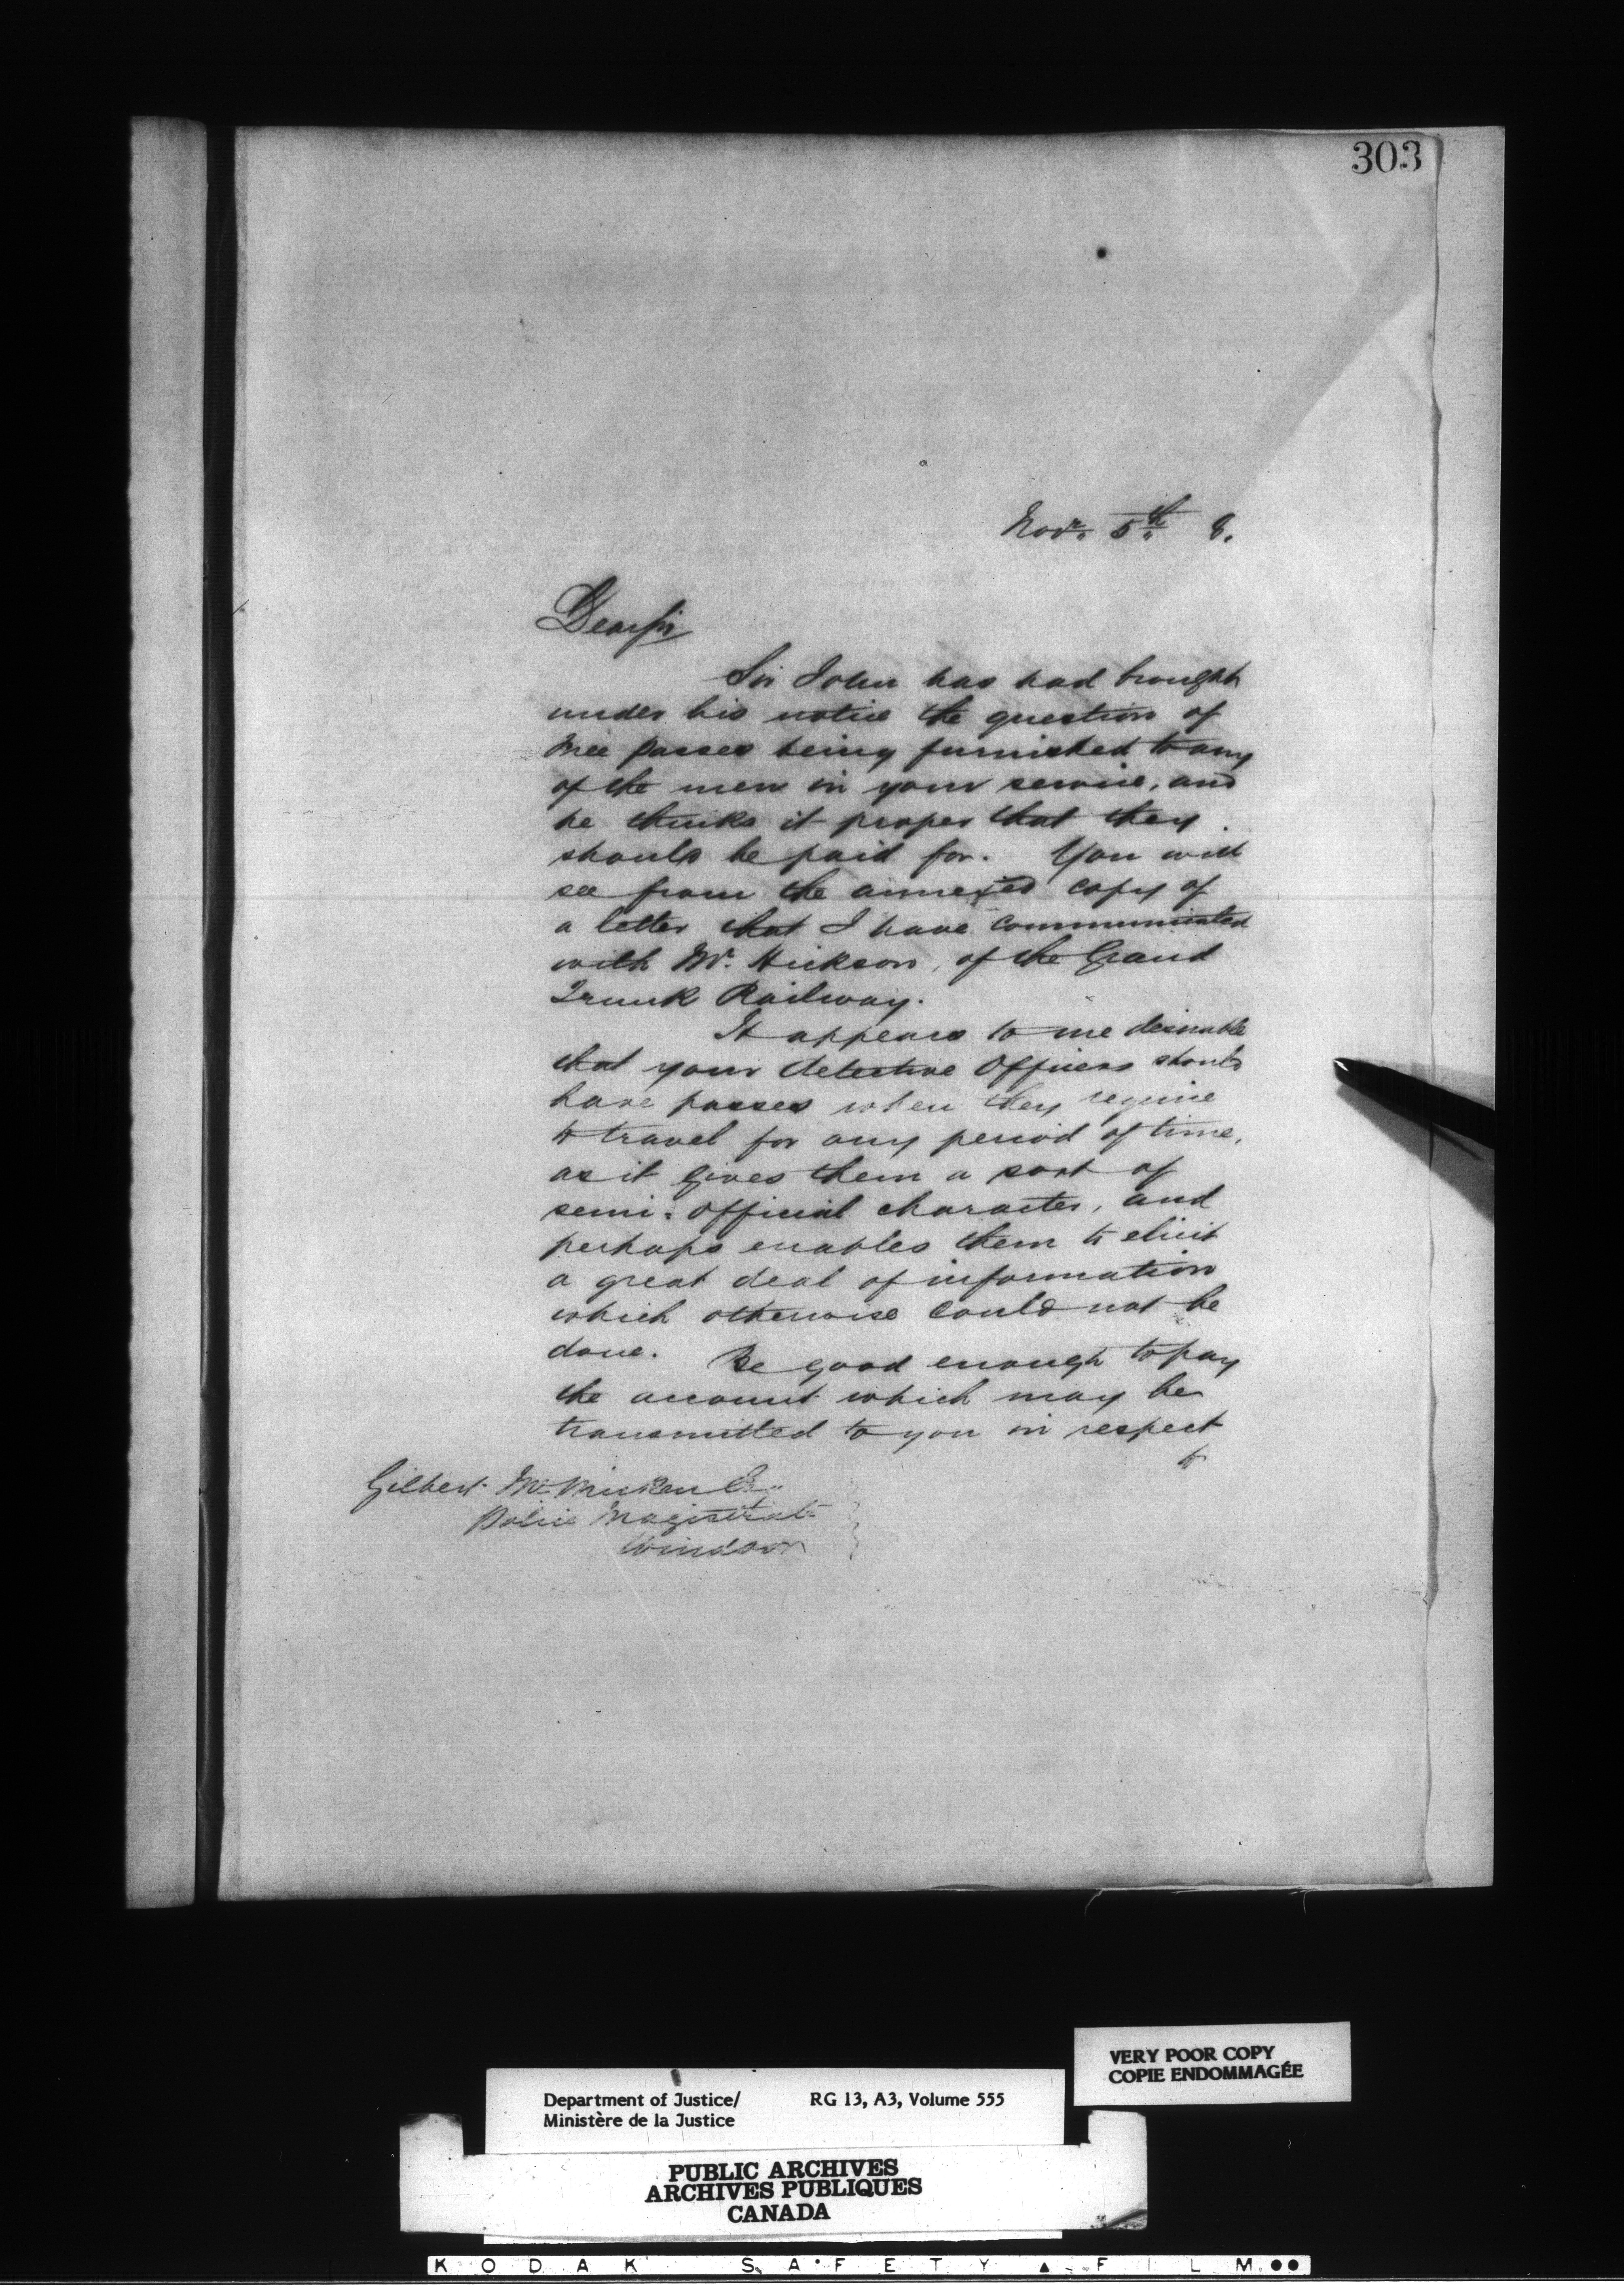 303
Novr. 5th 8.
Dear Sir
Sir John has had brought
under his notice the question of
free passes being furnished to any
of the men in your service, and
he thinks it proper that they
should be paid for. You will
see from the annexed copy of
a letter that I have communicated
with Mr. Hickson, of the Grand
Trunk Railway.
It appears to me desirable
that your detective Officers should
have passes when they require
to travel for any period of time,
as it gives them a sort of
semi-official character, and
perhaps enables them to elicit
a great deal of information
which otherwise could not be
done. Be good enough to pay
the account which may be
transmitted to you in respect
to
Gilbert McMicken Esq.
Police Magistrate
Windsor
VERY POOR COPY
COPIE ENDOMMAGÉE
Department of Justice/ RG 13, A3, Volume 555
Ministère de la Justice
PUBLIC ARCHIVES
ARCHIVES PUBLIQUES
CANADA
KODAK SAFETY ▲ FILM ●●